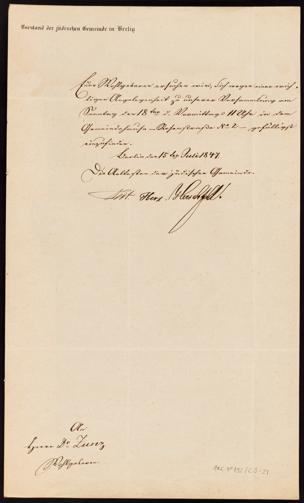 Vorstand der jüdischen Gemeinde in Berlin
Euer Wohlgeboren ersuchen wir, Sich wegen einer wich-
tigen Angelegenheit zu unserer Versammlung am
Sonntag den 18ten d. Vormittag 11 Uhr in dem
Gemeindehause Rosenstraße No 2 gefälligst
einzufinden.
Berlin den 15ten Juli 1847
Die Aeltesten der jüdischen Gemeinde.
An
Herrn Dr Zunz
Wohlgeboren